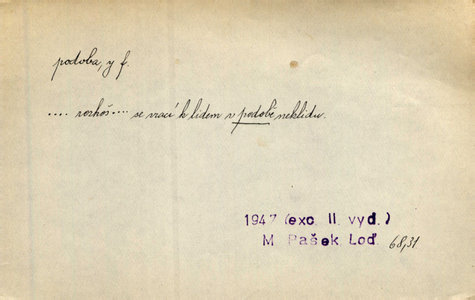 podoba, y f.
.... rozkoš.... se vrací k lidem v podobě neklidu.
1947 (exc. II. vyd.)
M Pašek Loď 68,31